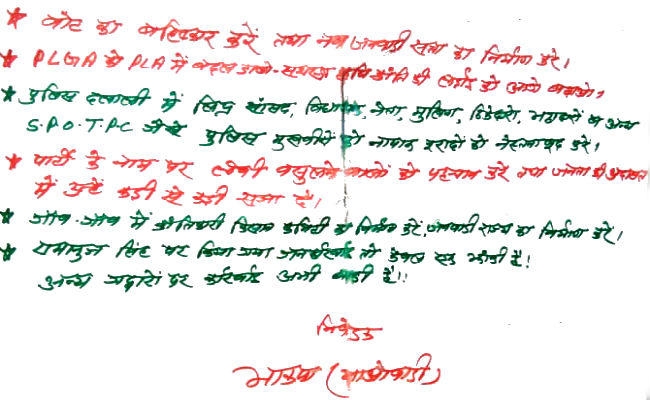 ★ वोट का बहिष्कार करें तथा नव जनवादी सत्ता का निर्माण करें।
★ PLGA को PLA में बदल डालो- सशस्त्र कृषि क्रांति की लड़ाई को आगे बढ़ाओ,
★ पुलिस दलाली में लिप्त सांसद, विधायक, नेता, पुलिस, ठिकेदारो, व अन्य
S.P.O.T.P.C जैसे पुलिस मुखबीरों को नापाक इरादों को नेस्तनाबूद करें।
★ पार्टी के नाम पर लेवी वसुलने वालों को पहचान करें तथा जनता की अदालत
में उन्हें कड़ी से कड़ी सजा दें।
★ गाँव-गाँव में क्रांतिकारी किसान कमिटी का निर्माण करें, जनवादी राज्य का निर्माण करें।
★ रामानुज सिंह पर किया गया कार्रवाई तो केवल एक झांकी है!
अन्य गद्दारों पर कार्रवाई अभी बाकी है!!
निवेदक
भाकपा (माओवादी)